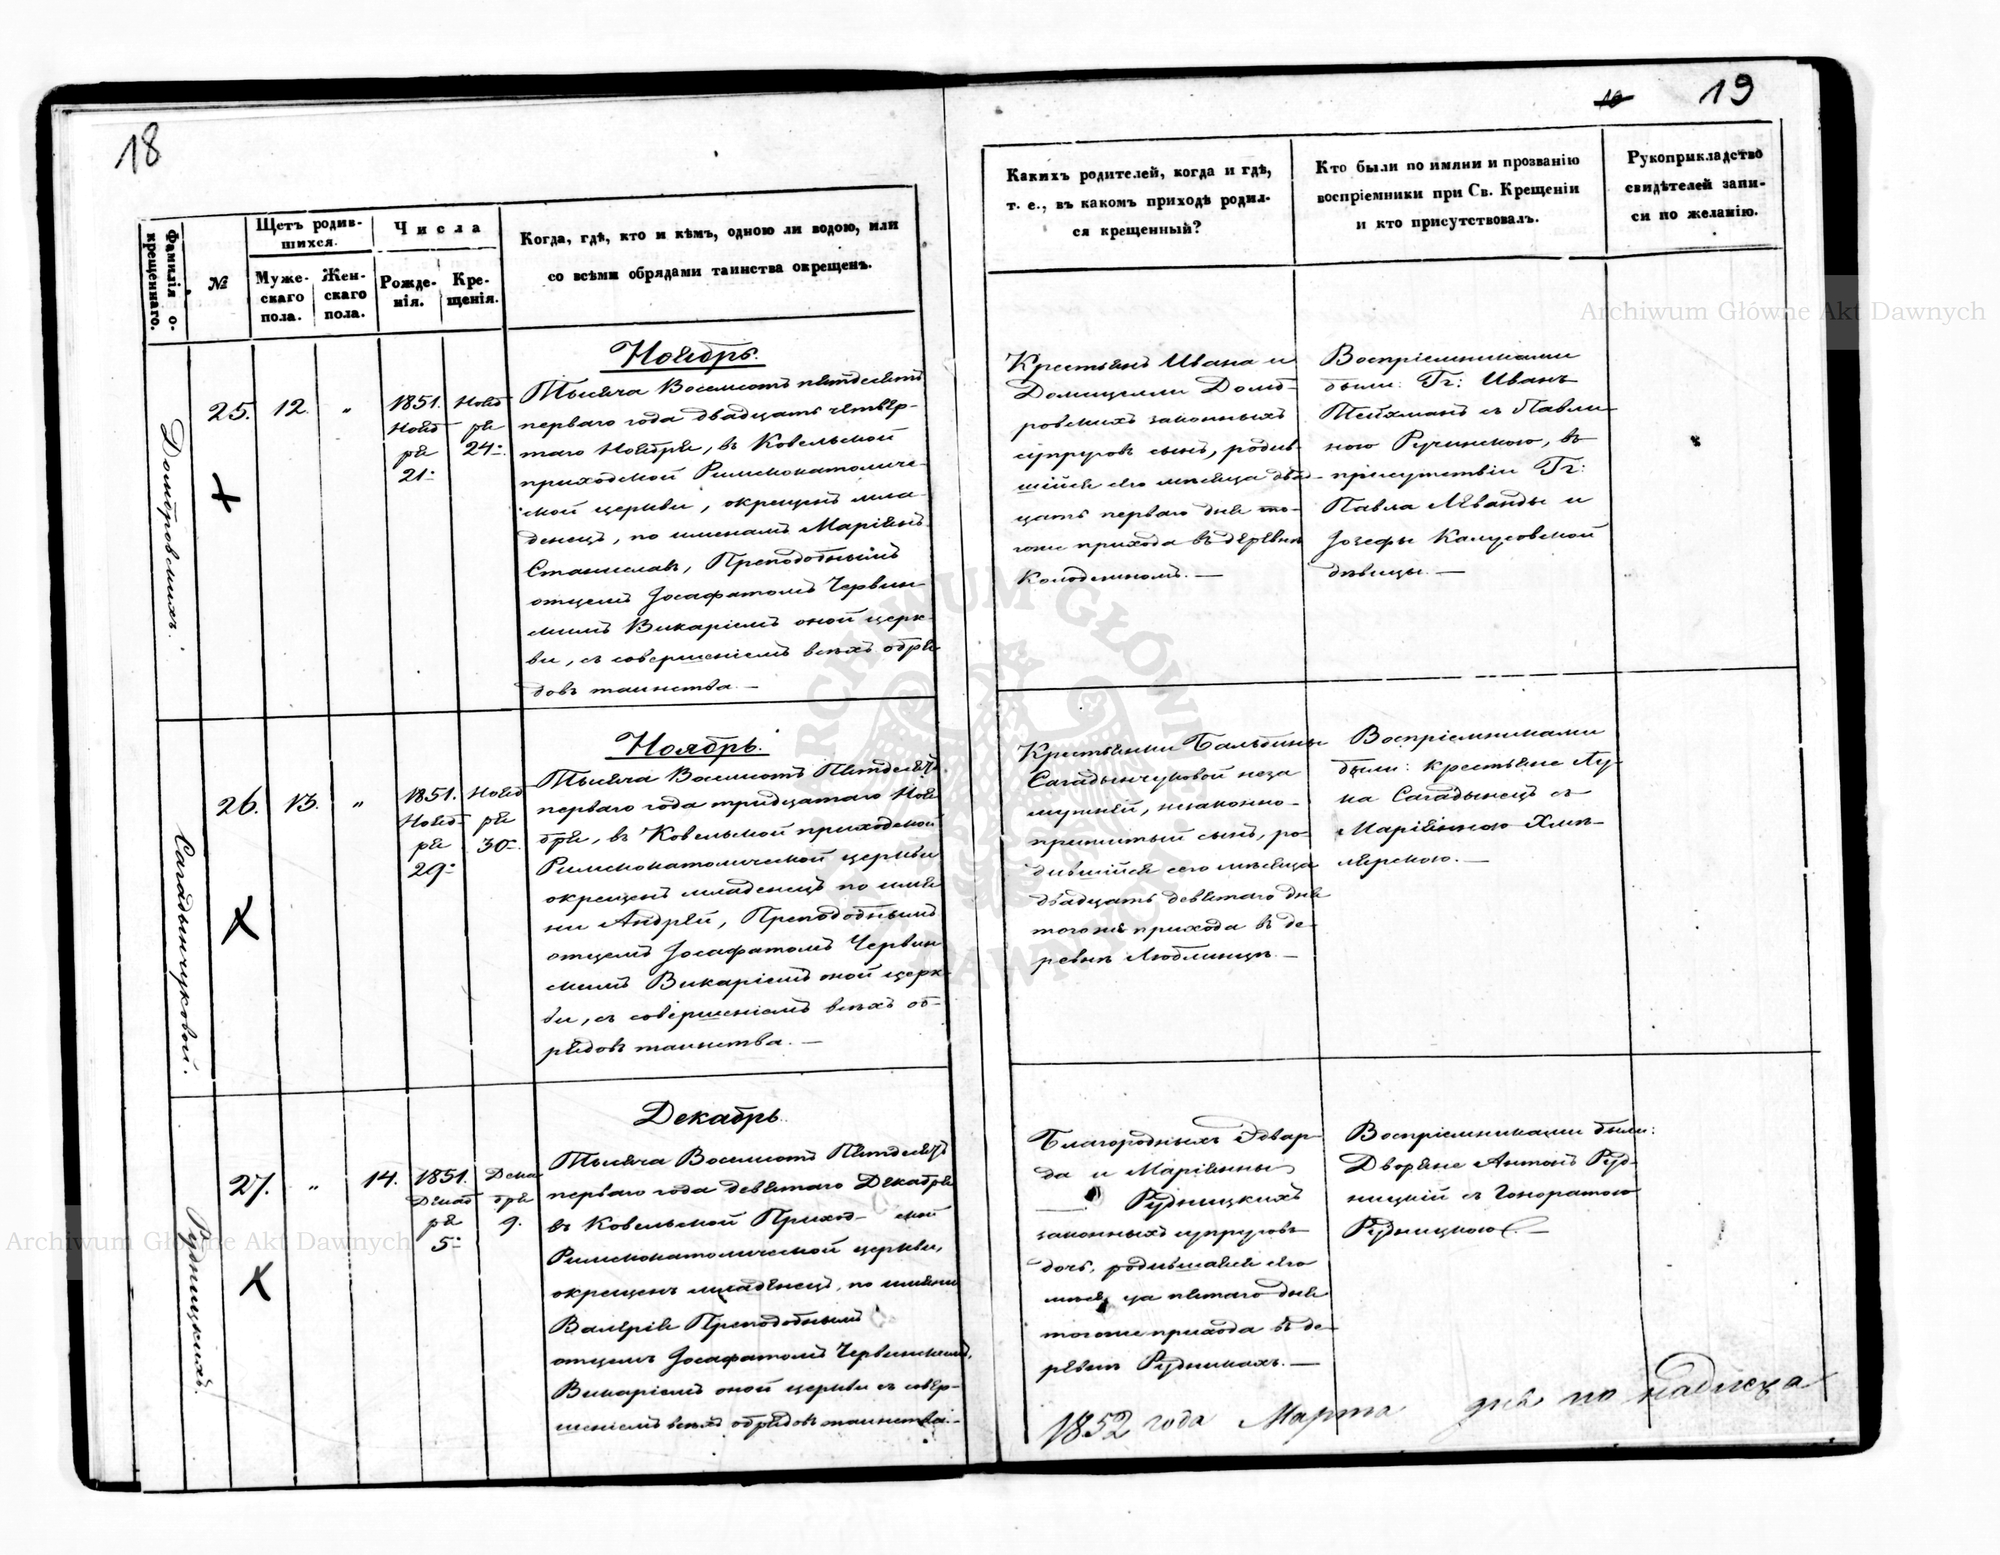 18
Фамилія о-
крещеннаго.
№
Щетъ родив-
шихся.
Муже-
скаго
пола.
Жен-
скаго
пола.
Числа
Рожде-
нія.
Кре-
щенія.
Когда, гдѣ, кто и кѣмъ, одною ли водою, или
со всѣми обрядами таинства окрещенъ.
Домбровскихъ.
25.
12.
"
1851.
Нояб
ря
21.
Нояб
ря
24.
Ноябрь.
Тысяча Восемсотъ пятдесятъ
перваго года двадцать четвер-
таго Ноября, въ Ковельской
приходской Римскокатоличе-
ской церкви, окрещенъ мла-
денецъ, по именамъ Маріянъ
Станиславъ, Преподобнымъ
отцемъ Іосафатомъ Червин-
скимъ Викаріемъ оной церк-
ви, съ совершеніемъ всѣхъ обря
довъ таинства. —
Сагадынчуковой.
26.
13.
"
1851.
Нояб
ря
29.
Нояб
ря
30.
Ноябрь.
Тысяча Восемсотъ Пятдесятъ
перваго года тридцатаго Ноя
бря, въ Ковельской приходской
Римскокатолической церкви
окрещенъ младенецъ по име
ни Андрей, Преподобнымъ
отцемъ Іосафатомъ Червин
скимъ Викаріемъ оной церк-
ви, съ совершеніемъ всѣхъ об-
рядовъ таинства. —
Рудницкихъ.
27.
"
14.
1851.
Декаб
ря
5.
Дека
бря
9.
Декабрь.
Тысяча Восемсотъ Пятдесятъ
перваго года девятаго Декабря
въ Ковельской Приход- ской
Римскокатолической церкви,
окрещенъ младенецъ, по имени
Валерія Преподобнымъ
отцемъ Іосафатомъ Червинскимъ,
Викаріемъ оной церкви съ совер-
шеніемъ всѣхъ обрядовъ таинства. —
19
Какихъ родителей, когда и гдѣ,
т. е., въ какомъ приходѣ родил-
ся крещенный?
Кто были по имяни и прозванію
воспріемники при Св. Крещеніи
и кто присутствовалъ.
Рукоприкладство
свидѣтелей запи-
си по желанію.
Крестьянъ Ивана и
Домицелли Домб-
ровскихъ законныхъ
супруговъ сынъ, родив-
шійся сего мѣсяца двад-
цать перваго дня то-
гоже прихода въ деревнѣ
Колодезномъ. —
Воспріемниками
были: Гг: Иванъ
Тейхманъ съ Павли-
ною Ручинскою, въ
присутствіи Гг:
Павла Леванды и
Іозефы Калусовской
дѣвицы. —
Крестьянки Бальбины
Сагадынчуковой неза
мужней, незаконно-
прижитый сынъ, ро-
дившійся сего мѣсяца
двадцать девятаго дня
тогоже прихода въ де-
ревнѣ Люблинцѣ. —
Воспріемниками
были: крестьяне Лу-
ка Сагадынецъ съ
Маріянною Хмѣ-
лярскою. —
Благородныхъ Эдвар-
да и Маріянны
Рудницкихъ
законныхъ супруговъ
дочь, родившаяся сего
мѣсяца пятаго дня
тогоже прихода въ де-
ревнѣ Рудникахъ. —
Воспріемниками были:
Дворяне Антонъ Руд-
ницкій съ Гоноратою
Рудницкою. —
1852 года Марта дня по
Archiwum Główne Akt Dawnych
Archiwum Główne Akt Dawnych
ARCHIWUM GŁÓWNE AKT DAWNYCH